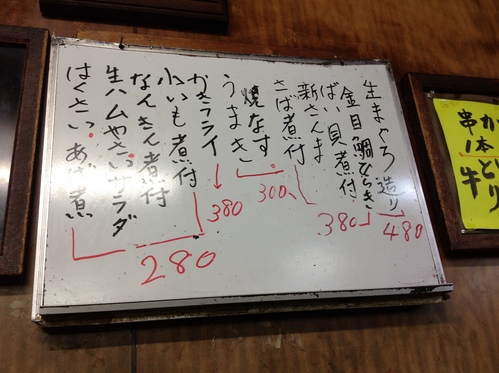 生まぐろ造り
金目鯛ひらき
480
ばい貝煮付
380
新さんま
さば煮付
焼なす
300
うまき
かきフライ
380
小いも煮付
なんきん煮付
生ハムやさいサラダ
はくさい・あげ煮
280
串
1本
牛